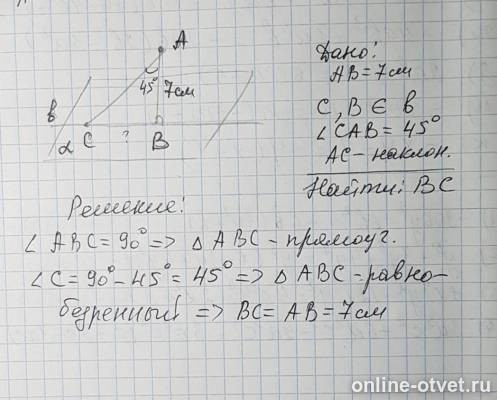 A
45° 7см
в
α C ? B
Дано:
AB = 7см
C, B ∈ в
∠CAB = 45°
AC – наклон.
Найти: BC
Решение:
∠ ABC = 90° => △ ABC – прямоуг.
∠ C = 90° – 45° = 45° => △ ABC – равно–
бедренный => BC = AB = 7см
online-otvet.ru